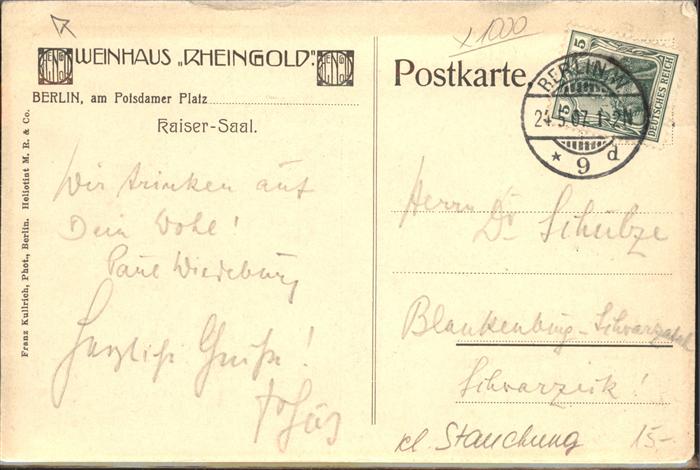 x 1000
WEINHAUS „RHEINGOLD“
BERLIN, am Potsdamer Platz
Kaiser-Saal.
Wir trinken auf
Dein Wohl!
Paul Wiedeburg
Herzliche Grüße!
Franz Kullrich, Phot., Berlin. Heliotint M. R. & Co.
Postkarte.
5
DEUTSCHES REICH
BERLIN. W.
24.5.07. 1-2N
* 9 d
Herrn Dr. Schulze
Blankenburg-Schwarzatal
Schwarzeck!
kl. Stauchung
15-